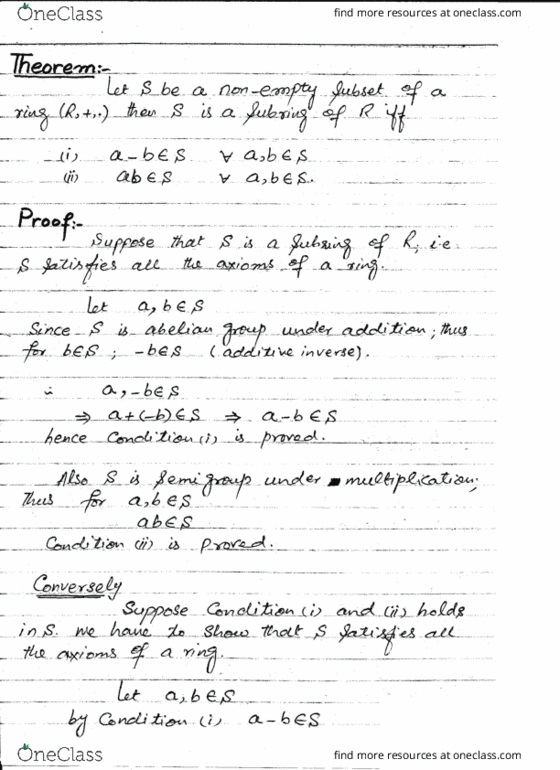 OneClass
find more resources at oneclass.com
Theorem:-
Let S be a non-empty subset of a
ring (R,+,.) then S is a subring of R iff
(i) a-b∈S ∀ a,b∈S
(ii) ab∈S ∀ a,b∈S.
Proof:-
Suppose that S is a subring of R, i.e
S satisfies all the axioms of a ring.
Let a,b∈S
Since S is abelian group under addition; thus
for b∈S ; -b∈S (additive inverse).
∴ a,-b∈S
⇒ a+(-b)∈S ⇒ a-b∈S
hence Condition (i) is proved.
Also S is semigroup under multiplication;
thus for a,b∈S
ab∈S
Condition (ii) is proved.
Conversely
Suppose Condition (i) and (ii) holds
in S. we have to show that S satisfies all
the axioms of a ring.
Let a,b∈S
by Condition (i) a-b∈S
OneClass
find more resources at oneclass.com